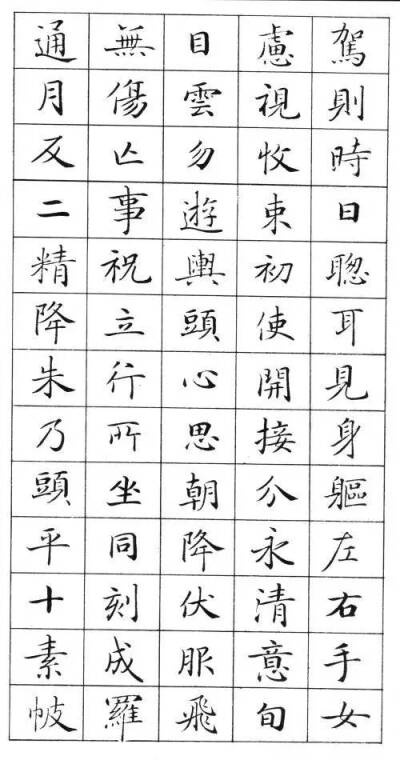 駕則時日聦耳見身軀左右手女
慮視收束初使開接分永清意旬
目雲勿遊輿頭心思朝降伏服飛
無傷亡事祝立行所坐同刻成羅
通月反二精降朱乃頭平十素帔